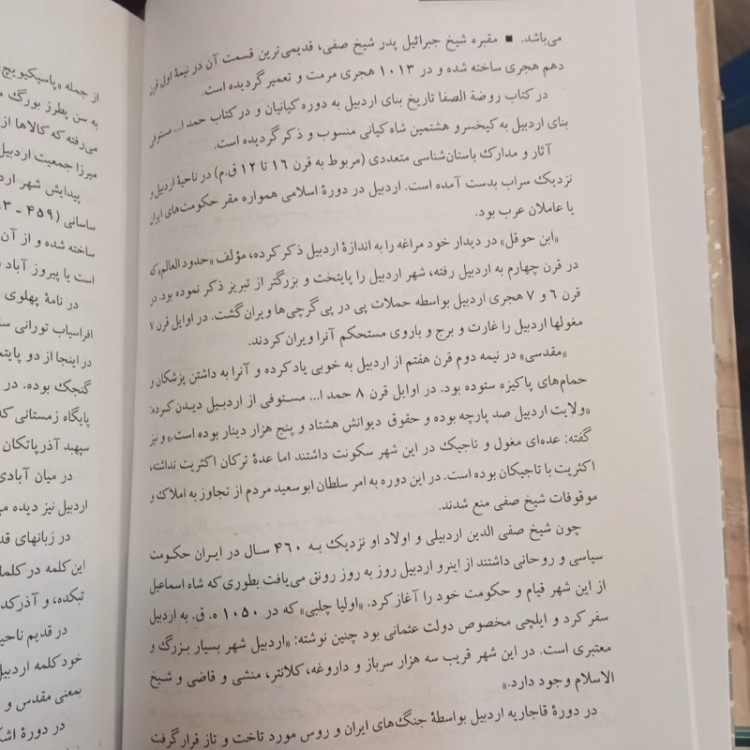 می‌باشد. ■ مقبره شیخ جبرائیل پدر شیخ صفی، قدیمی‌ترین قسمت آن در نیمهٔ اول قرن
دهم هجری ساخته شده و در ۱۰۱۳ هجری مرمت و تعمیر گردیده است.
در کتاب روضة الصفا تاریخ بنای اردبیل به دوره کیانیان و در کتاب حمد ا... مستوفی
بنای اردبیل به کیخسرو هشتمین شاه کیانی منسوب و ذکر گردیده است.
آثار و مدارک باستان‌شناسی متعددی (مربوط به قرن ۱۶ تا ۱۲ ق.م) در ناحیهٔ اردبیل و
نزدیک سراب بدست آمده است. اردبیل در دورهٔ اسلامی همواره مقر حکومت‌های ایران
یا عاملان عرب بود.
«ابن حوقل» در دیدار خود مراغه را به اندازهٔ اردبیل ذکر کرده، مؤلف «حدود العالم» که
در قرن چهارم به اردبیل رفته، شهر اردبیل را پایتخت و بزرگتر از تبریز ذکر نموده بود. در
قرن ۶ و ۷ هجری اردبیل بواسطه حملات پی در پی گرچی‌ها ویران گشت. در اوایل قرن ۷
مغولها اردبیل را غارت و برج و باروی مستحکم آنرا ویران کردند.
«مقدسی» در نیمه دوم قرن هفتم از اردبیل به خوبی یاد کرده و آنرا به داشتن پزشکان و
حمام‌های پاکیزه ستوده بود. در اوایل قرن ۸ حمد ا... مستوفی از اردبیل دیدن کرده:
«ولایت اردبیل صد پارچه بوده و حقوق دیوانش هشتاد و پنج هزار دینار بوده است.» و نیز
گفته: عده‌ای مغول و تاجیک در این شهر سکونت داشتند اما عدهٔ ترکان اکثریت نداشته،
اکثریت با تاجیکان بوده است. در این دوره به امر سلطان ابو سعید مردم از تجاوز به املاک و
موقوفات شیخ صفی منع شدند.
چون شیخ صفی الدین اردبیلی و اولاد او نزدیک به ۴۶۰ سال در ایران حکومت
سیاسی و روحانی داشتند از اینرو اردبیل روز به روز رونق می‌یافت بطوری که شاه اسماعیل
از این شهر قیام و حکومت خود را آغاز کرد. «اولیا چلبی» که در ۱۰۵۰ ه. ق. به اردبیل
سفر کرد و ایلچی مخصوص دولت عثمانی بود چنین نوشته: «اردبیل شهر بسیار بزرگ و
معتبری است. در این شهر قریب سه هزار سرباز و داروغه، کلانتر، منشی و قاضی و شیخ
الاسلام وجود دارد.»
در دورهٔ قاجاریه اردبیل بواسطهٔ جنگ‌های ایران و روس مورد تاخت و تاز قرار گرفت
از جمله «پاسیکیویچ»
به سن پطرز بورگ
می‌رفته که کالاها از
میرزا جمعیت اردبیل
پیدایش شهر
ساسانی (۴۵۹ ـ
ساخته شده و از آن
است یا پیروز آباد
در نامهٔ پهلوی
افراسیاب تورانی
در اینجا از دو
گنجک بوده. در
پایگاه زمستانی که
سپهبد آذرپاتکان
در میان آبادی
اردبیل نیز دیده
در زبانهای
این کلمه در
تبکده، و
در قدیم
خود کلمه اردبیل
بمعنی مقدس و
در دورهٔ